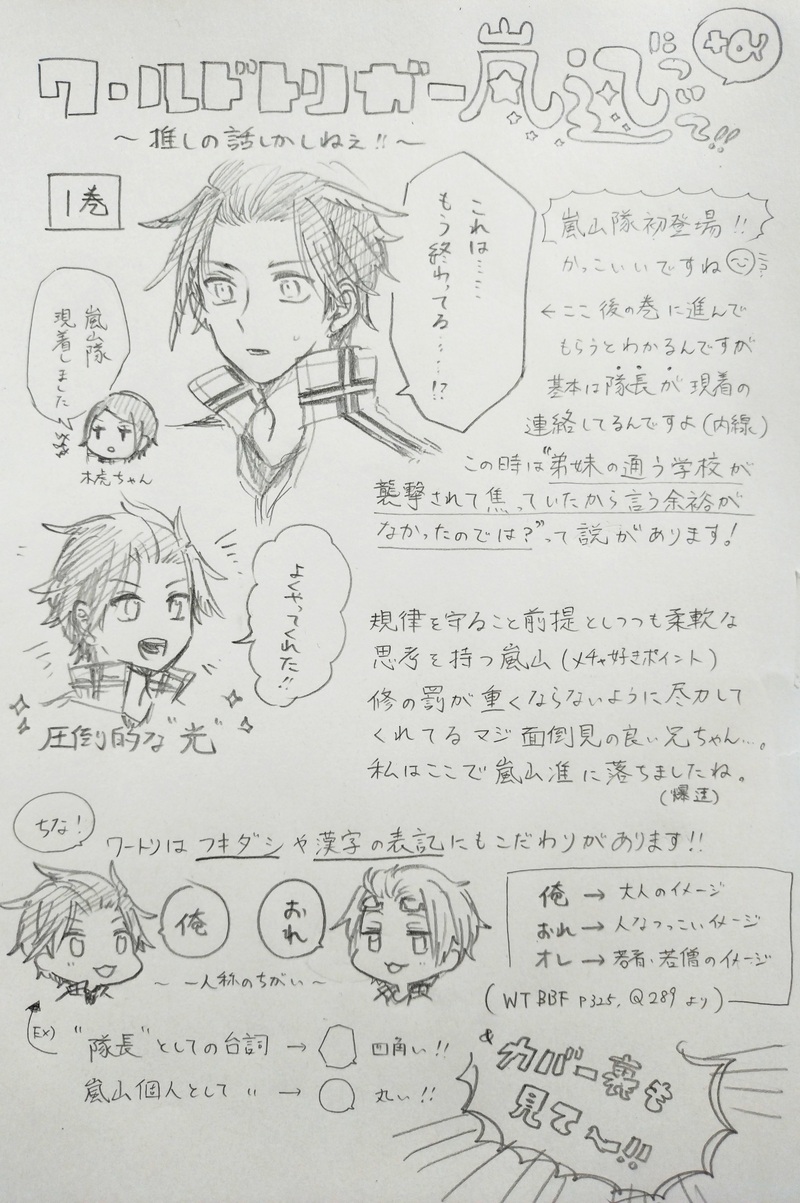 ワールドトリガー嵐忍び
+α
～推しの話しかしねぇ!!～
1巻
これは……
もう終わってる……!?
嵐山隊
現着しました
木虎ちゃん
嵐山隊初登場!!
かっこいいですね
←ここ後の巻に進んで
もらうとわかるんですが
基本は隊長が現着の
連絡してるんですよ(内線)
この時は"弟妹の通う学校が
襲撃されて焦っていたから言う余裕が
なかったのでは?"って説があります!
よくやってくれた!!
圧倒的な"光"
規律を守ること前提としつつも柔軟な
思考を持つ嵐山(メチャ好きポイント)
修の罰が重くならないように尽力して
くれてるマジ面倒見の良い兄ちゃん…。
私はここで嵐山准に落ちましたね。
(爆速)
ちな!
ワートリはフキダシや漢字の表記にもこだわりがあります!!
俺
おれ
～一人称のちがい～
俺→大人のイメージ
おれ→人なつっこいイメージ
オレ→若者・若僧のイメージ
(WT BBF P325, Q289 より)
EX)
"隊長"としての台詞→四角い!!
嵐山個人として 〃 →丸い!!
&カバー裏も
見て～!!